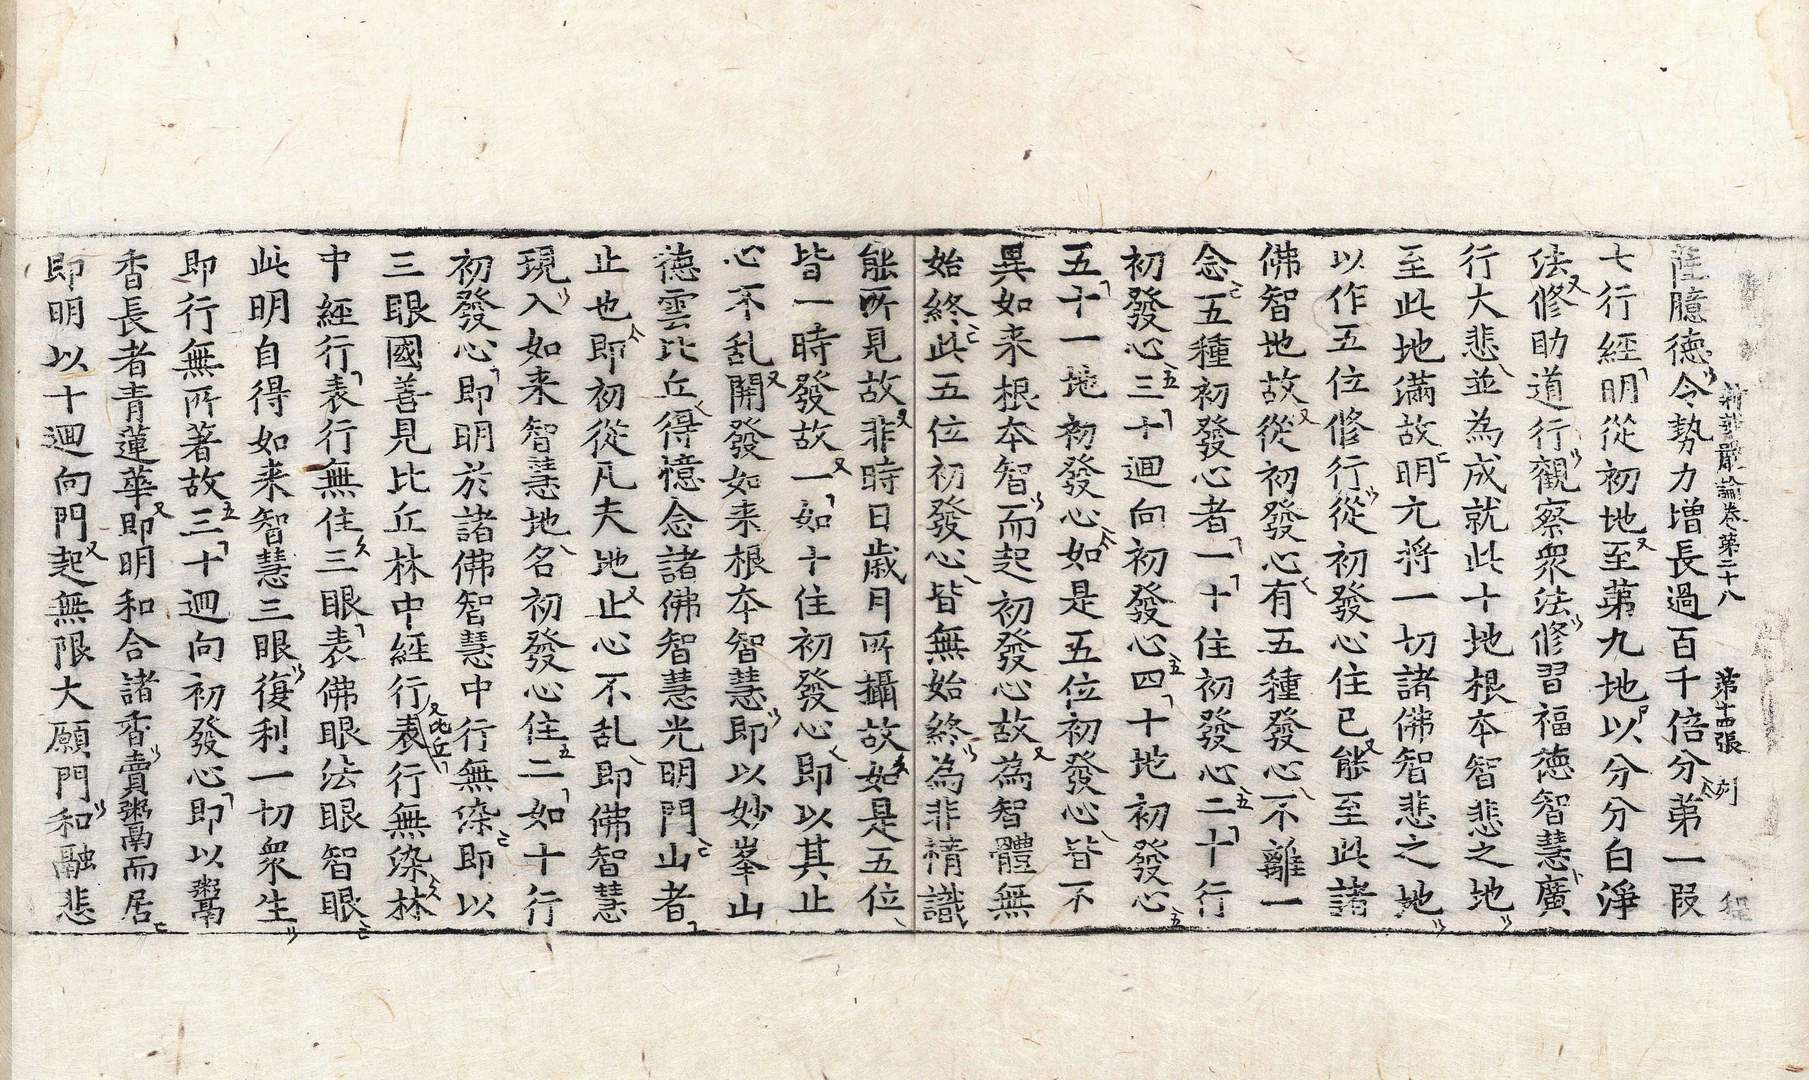 新華嚴論卷第二十八 第十四張 列
薩臆德令勢力增長過百千倍分第一段
七行經明從初地至第九地以分分白淨
法修助道行觀察衆法修習福德智慧廣
行大悲並為成就此十地根本智悲之地
至此地滿故明亢將一切諸佛智悲之地
以作五位修行從初發心住已能至此諸
佛智地故從初發心有五種發心不離一
念五種初發心者一十住初發心二十行
初發心三十迴向初發心四十地初發心
五十一地初發心如是五位初發心皆不
異如来根本智而起初發心故為智體無
始終此五位初發心皆無始終為非情識
能所見故非時日歲月所攝故如是五位
皆一時發故一如十住初發心即以其止
心不乱開發如来根本智慧即以妙峯山
德雲比丘得憶念諸佛智慧光明門山者
止也即初從凡夫地止心不乱即佛智慧
現入如来智慧地名初發心住二如十行
初發心即明於諸佛智慧中行無染即以
三眼國善見比丘林中經行表行無染林
中經行表行無住三眼表佛眼法眼智眼
此明自得如来智慧三眼復利一切衆生
即行無所著故三十迴向初發心即以鬻
香長者青蓮華即明和合諸香賣鬻而居
即明以十迴向門起無限大願門和融悲